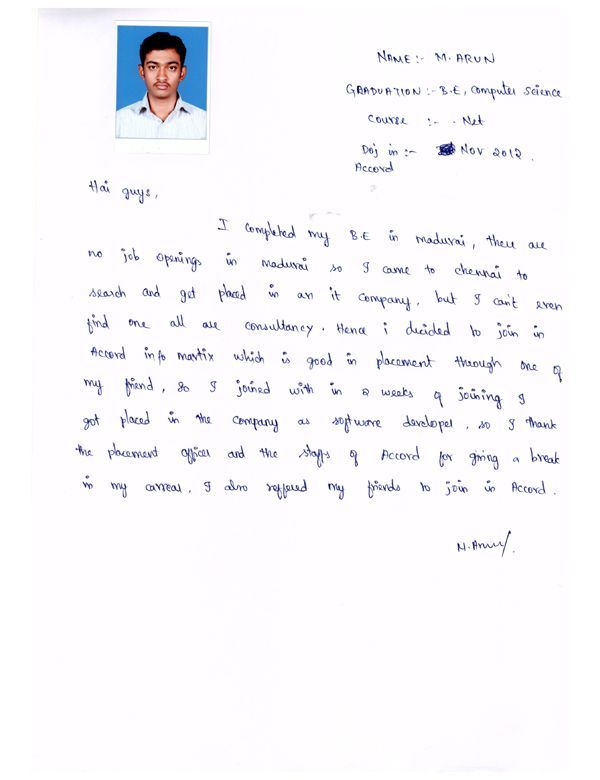 NAME :- M. ARUN
GRADUATION :- B.E, Computer Science
Course :- . Net
Doj in :- Nov 2012.
Accord
Hai guys,
I completed my B.E in madurai, there are
no job openings in madurai so I came to chennai to
search and get placed in an it company, but I can't even
find one all are consultancy. Hence i decided to join in
Accord info martix which is good in placement through one of
my friend, so I joined with in 2 weeks of joining I
got placed in the company as software developer, so I thank
the placement officer and the staffs of Accord for giving a break
in my carrear, I also reffered my friends to join in Accord.